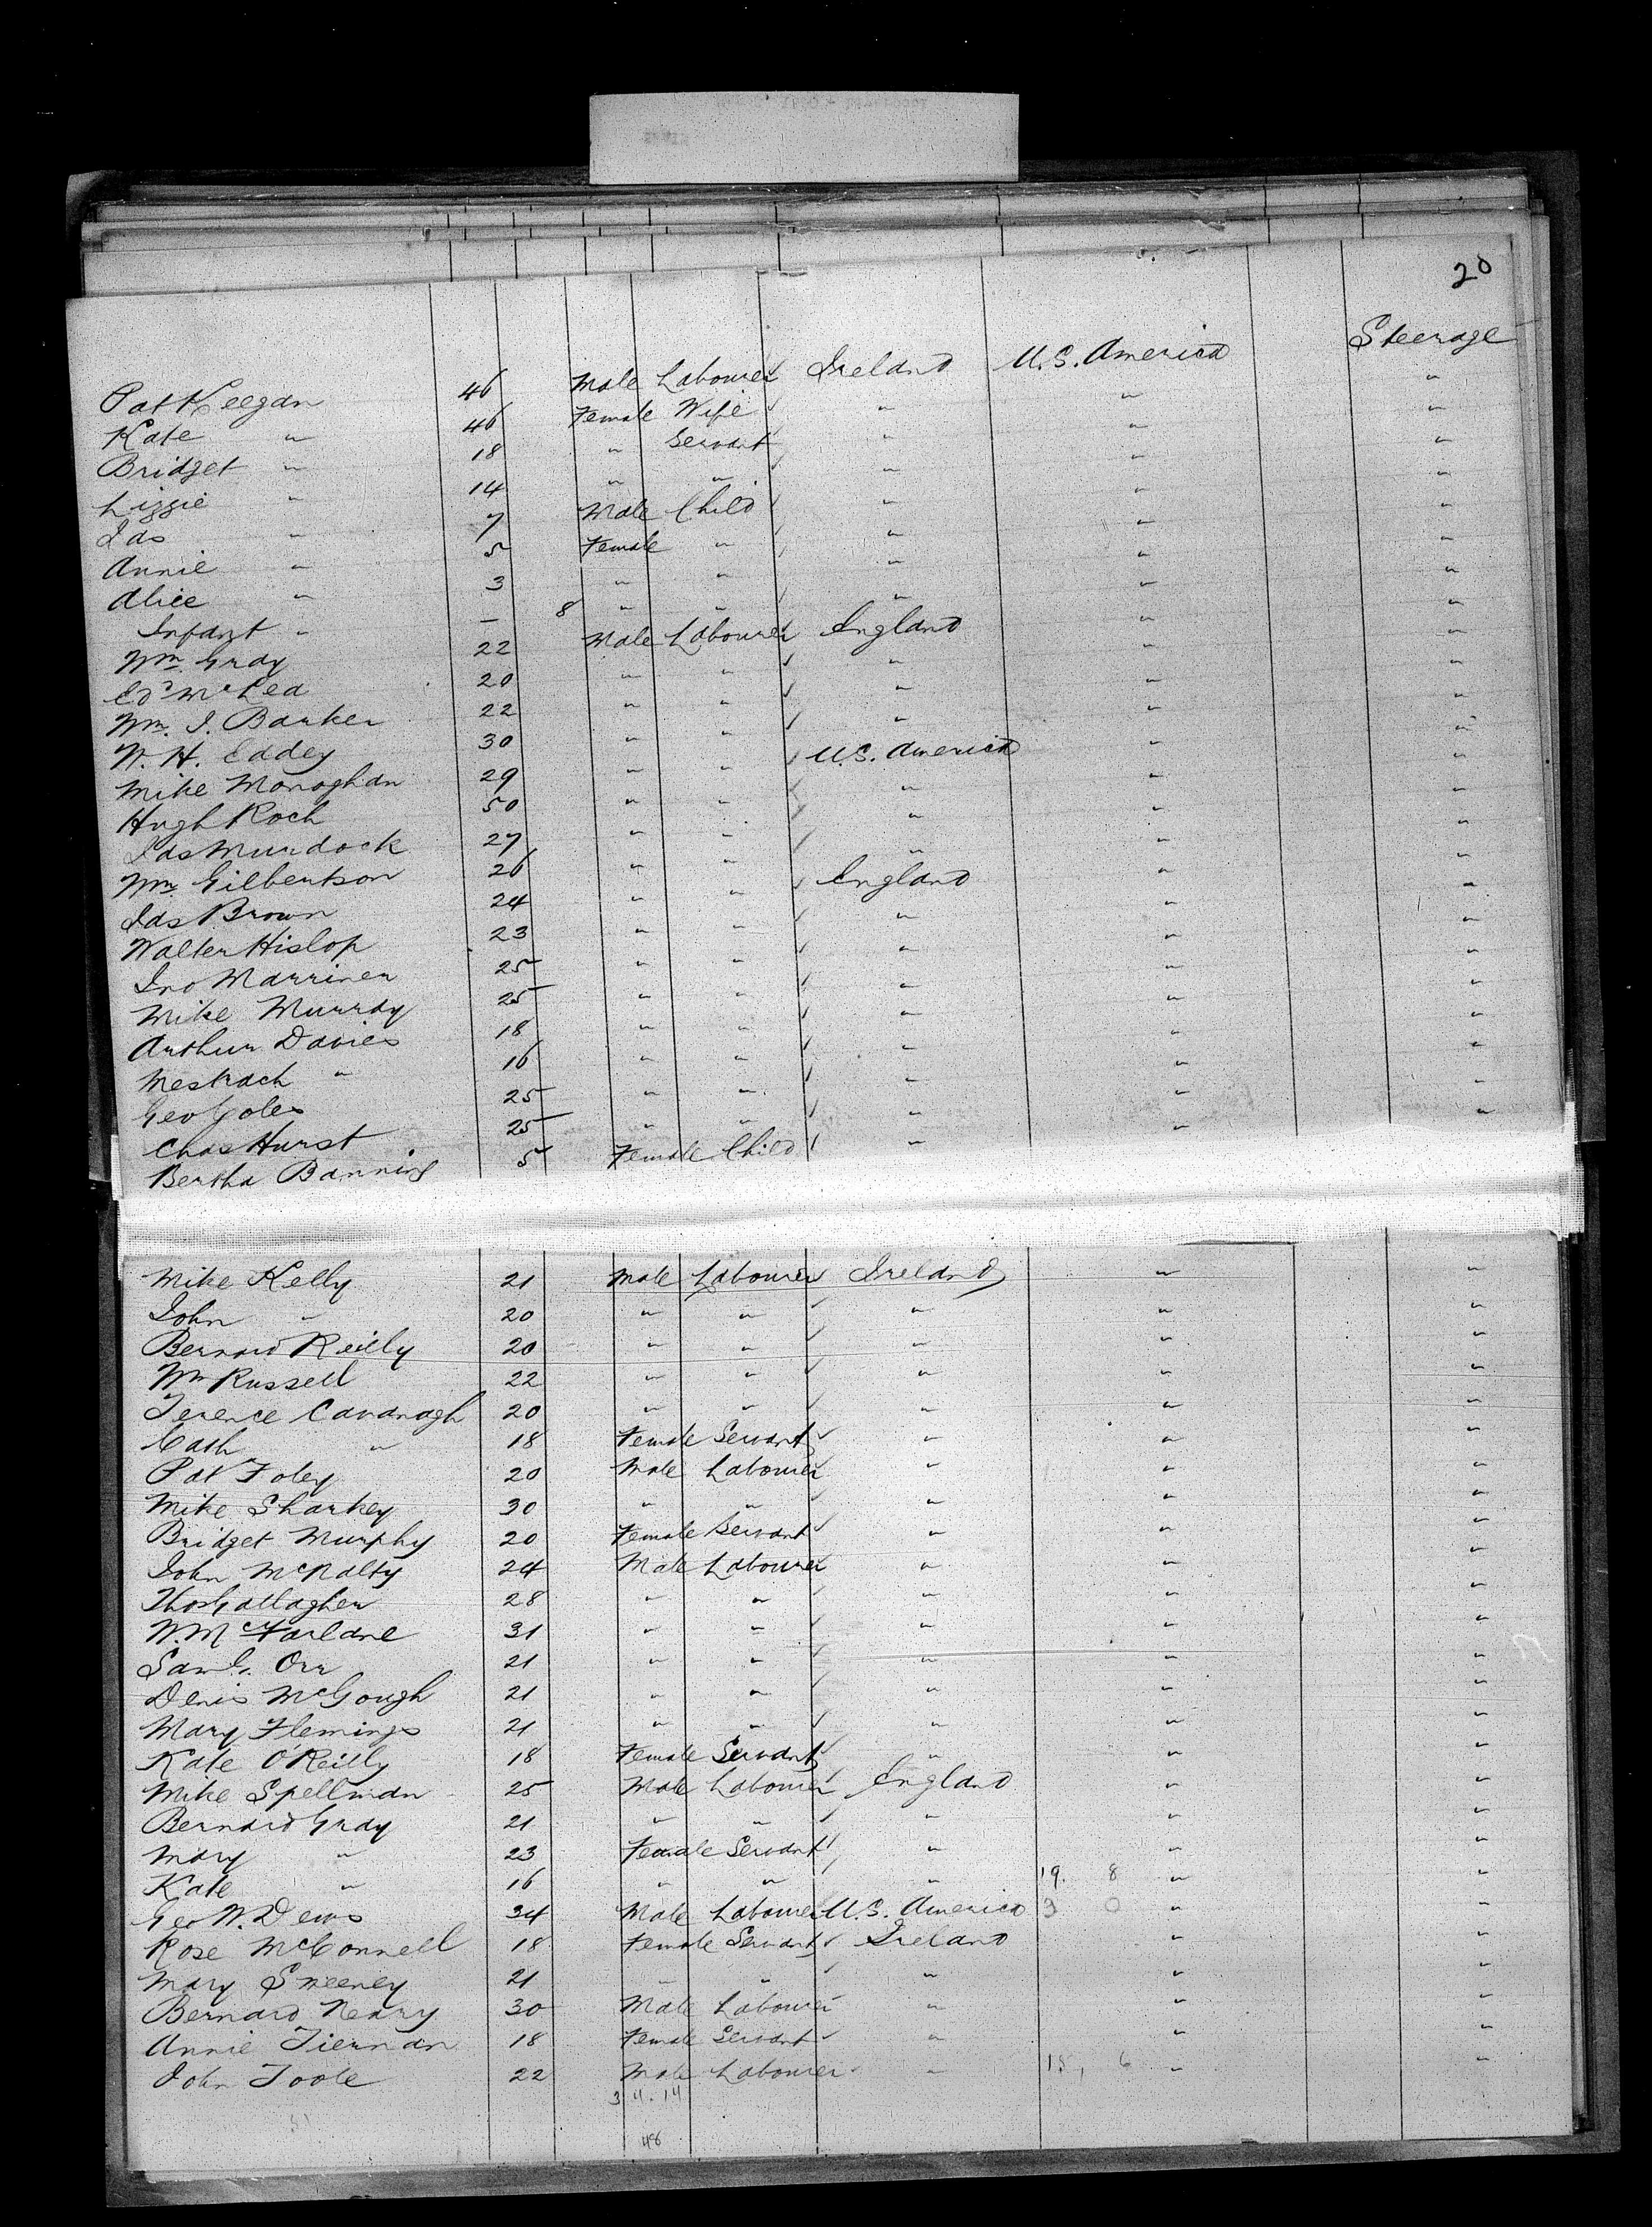 20
Pat Keegan 46 Male Labourer Ireland U.S. America Steerage
Kate " 46 Female Wife " " "
Bridget " 18 " Servant " " "
Lizzie " 14 " " " " "
Jas " 7 Male Child " " "
Annie " 5 Female " " " "
Alice " 3 " " " " "
Infant " — 8 " " " " "
Wm Gray 22 Male Labourer England " "
Edd McLea 20 " " " " "
Wm. J. Barker 22 " " " " "
W. H. Eddey 30 " " " " "
Mike Monoghan 29 " " U.S. America " "
Hugh Roch 50 " " " " "
Jas Murdock 27 " " " " "
Wm Gilbertson 26 " " " " "
Jas Brown 24 " " England " "
Walter Hislop 23 " " " " "
Jno Marriner 25 " " " " "
Mike Murray 25 " " " " "
Arthur Davies 18 " " " " "
Meshach " 16 " " " " "
Geo Coles 25 " " " " "
Chas Hurst 25 " " " " "
Bertha Banning 5 Female Child " " "
Mike Kelly 21 Male Labourer Ireland " "
John " 20 " " " " "
Bernard Reilly 20 " " " " "
Wm Russell 22 " " " " "
Terence Cavanagh 20 " " " " "
Cath " 18 Female Servant " " "
Pat Foley 20 Male Labourer " " "
Mike Sharkey 30 " " " " "
Bridget Murphy 20 Female Servant " " "
John McNalty 24 Male Labourer " " "
Thos Gallagher 28 " " " " "
W. McFarlane 31 " " " " "
Saml. Orr 21 " " " " "
Denis McGough 21 " " " " "
Mary Flemings 21 " " " " "
Kate O'Reilly 18 Female Servant " " "
Mike Spellman 25 Male Labourer England " "
Bernard Gray 21 " " " " "
Mary " 23 Female Servant " " "
Kate " 16 " " " 19. 8 " "
Geo W. Dews 34 Male Labourer U.S. America 3 0 " "
Rose McConnell 18 Female Servant Ireland " "
Mary Sweeney 21 " " " " "
Bernard Neary 30 Male Labourer " " "
Annie Tiernan 18 Female Servant " " "
John Toole 22 Male Labourer " 15, 6 " "
3 4. 14
48